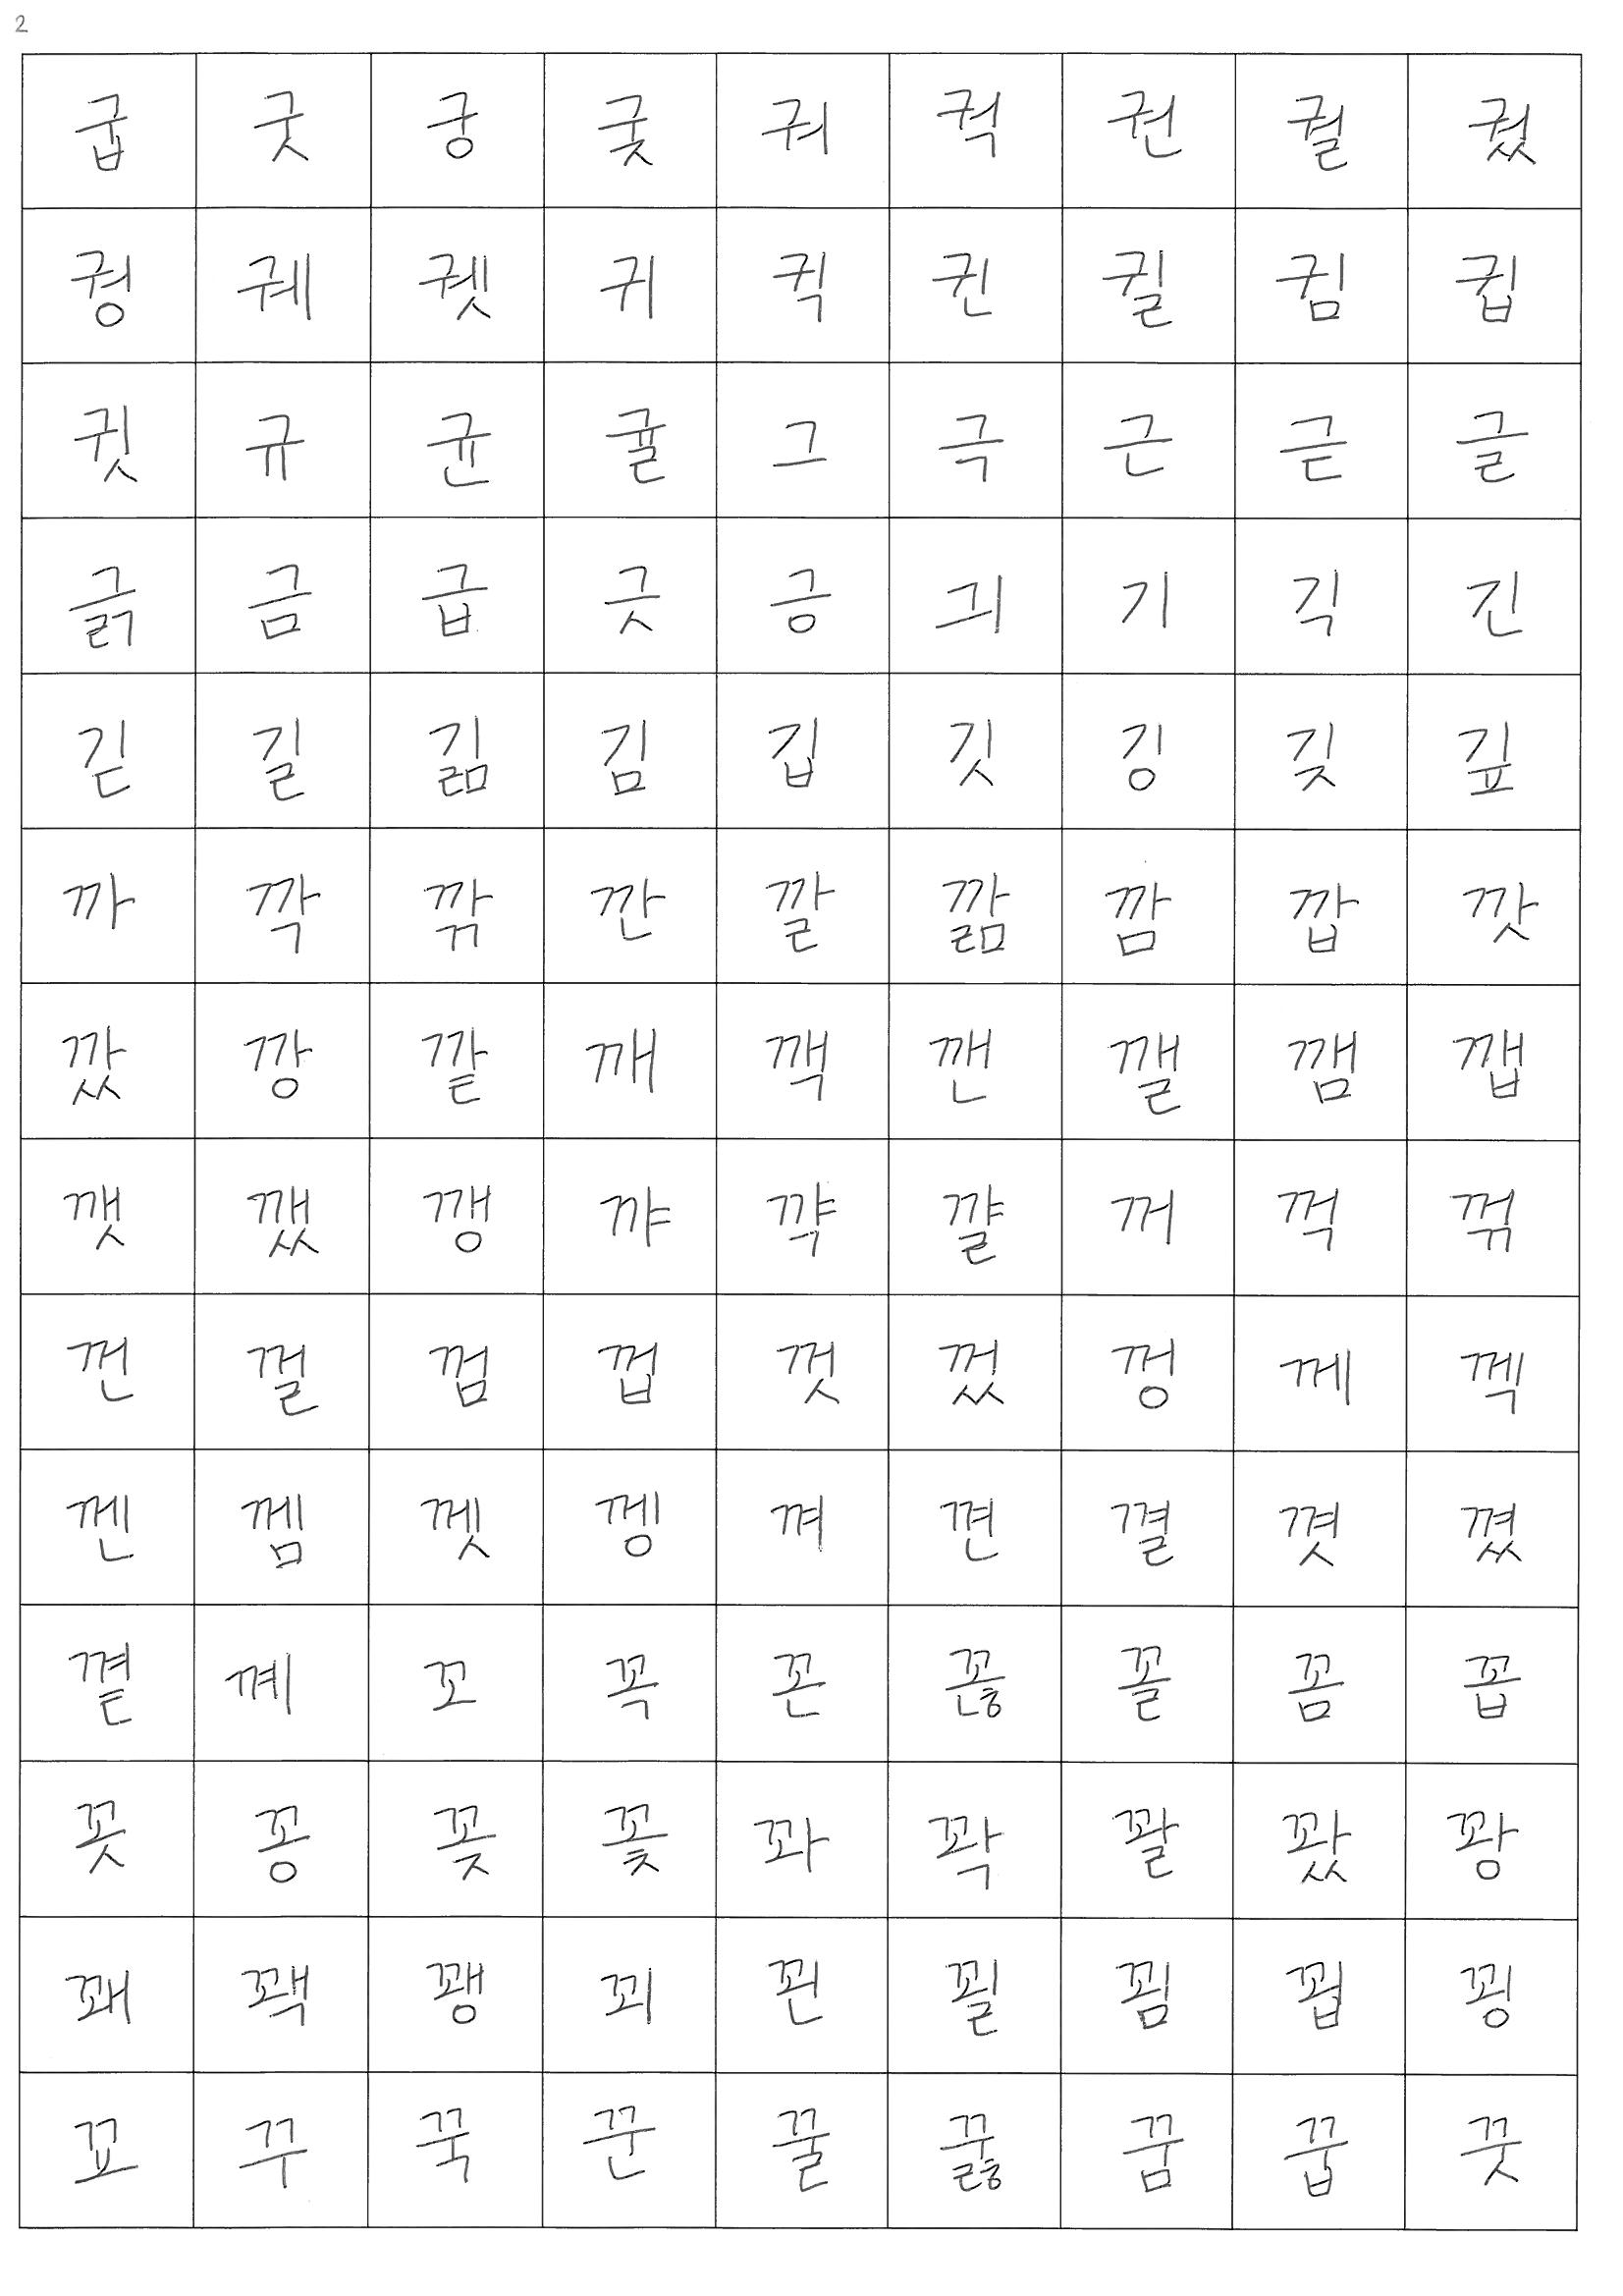 2
굽 굿 궁 궂 궈 궉 권 궐 궜
궝 궤 궷 귀 귁 귄 귈 귐 귑
귓 규 균 귤 그 극 근 귿 글
긁 금 급 긋 긍 긔 기 긱 긴
긷 길 긺 김 깁 깃 깅 깆 깊
까 깍 깎 깐 깔 깖 깜 깝 깟
깠 깡 깥 깨 깩 깬 깰 깸 깹
깻 깼 깽 꺄 꺅 꺌 꺼 꺽 꺾
껀 껄 껌 껍 껏 껐 껑 께 껙
껜 껨 껫 껭 껴 껸 껼 꼇 꼈
꼍 꼐 꼬 꼭 꼰 꼲 꼴 꼼 꼽
꼿 꽁 꽂 꽃 꽈 꽉 꽐 꽜 꽝
꽤 꽥 꽹 꾀 꾄 꾈 꾐 꾑 꾕
꾜 꾸 꾹 꾼 꿀 꿇 꿈 꿉 꿋